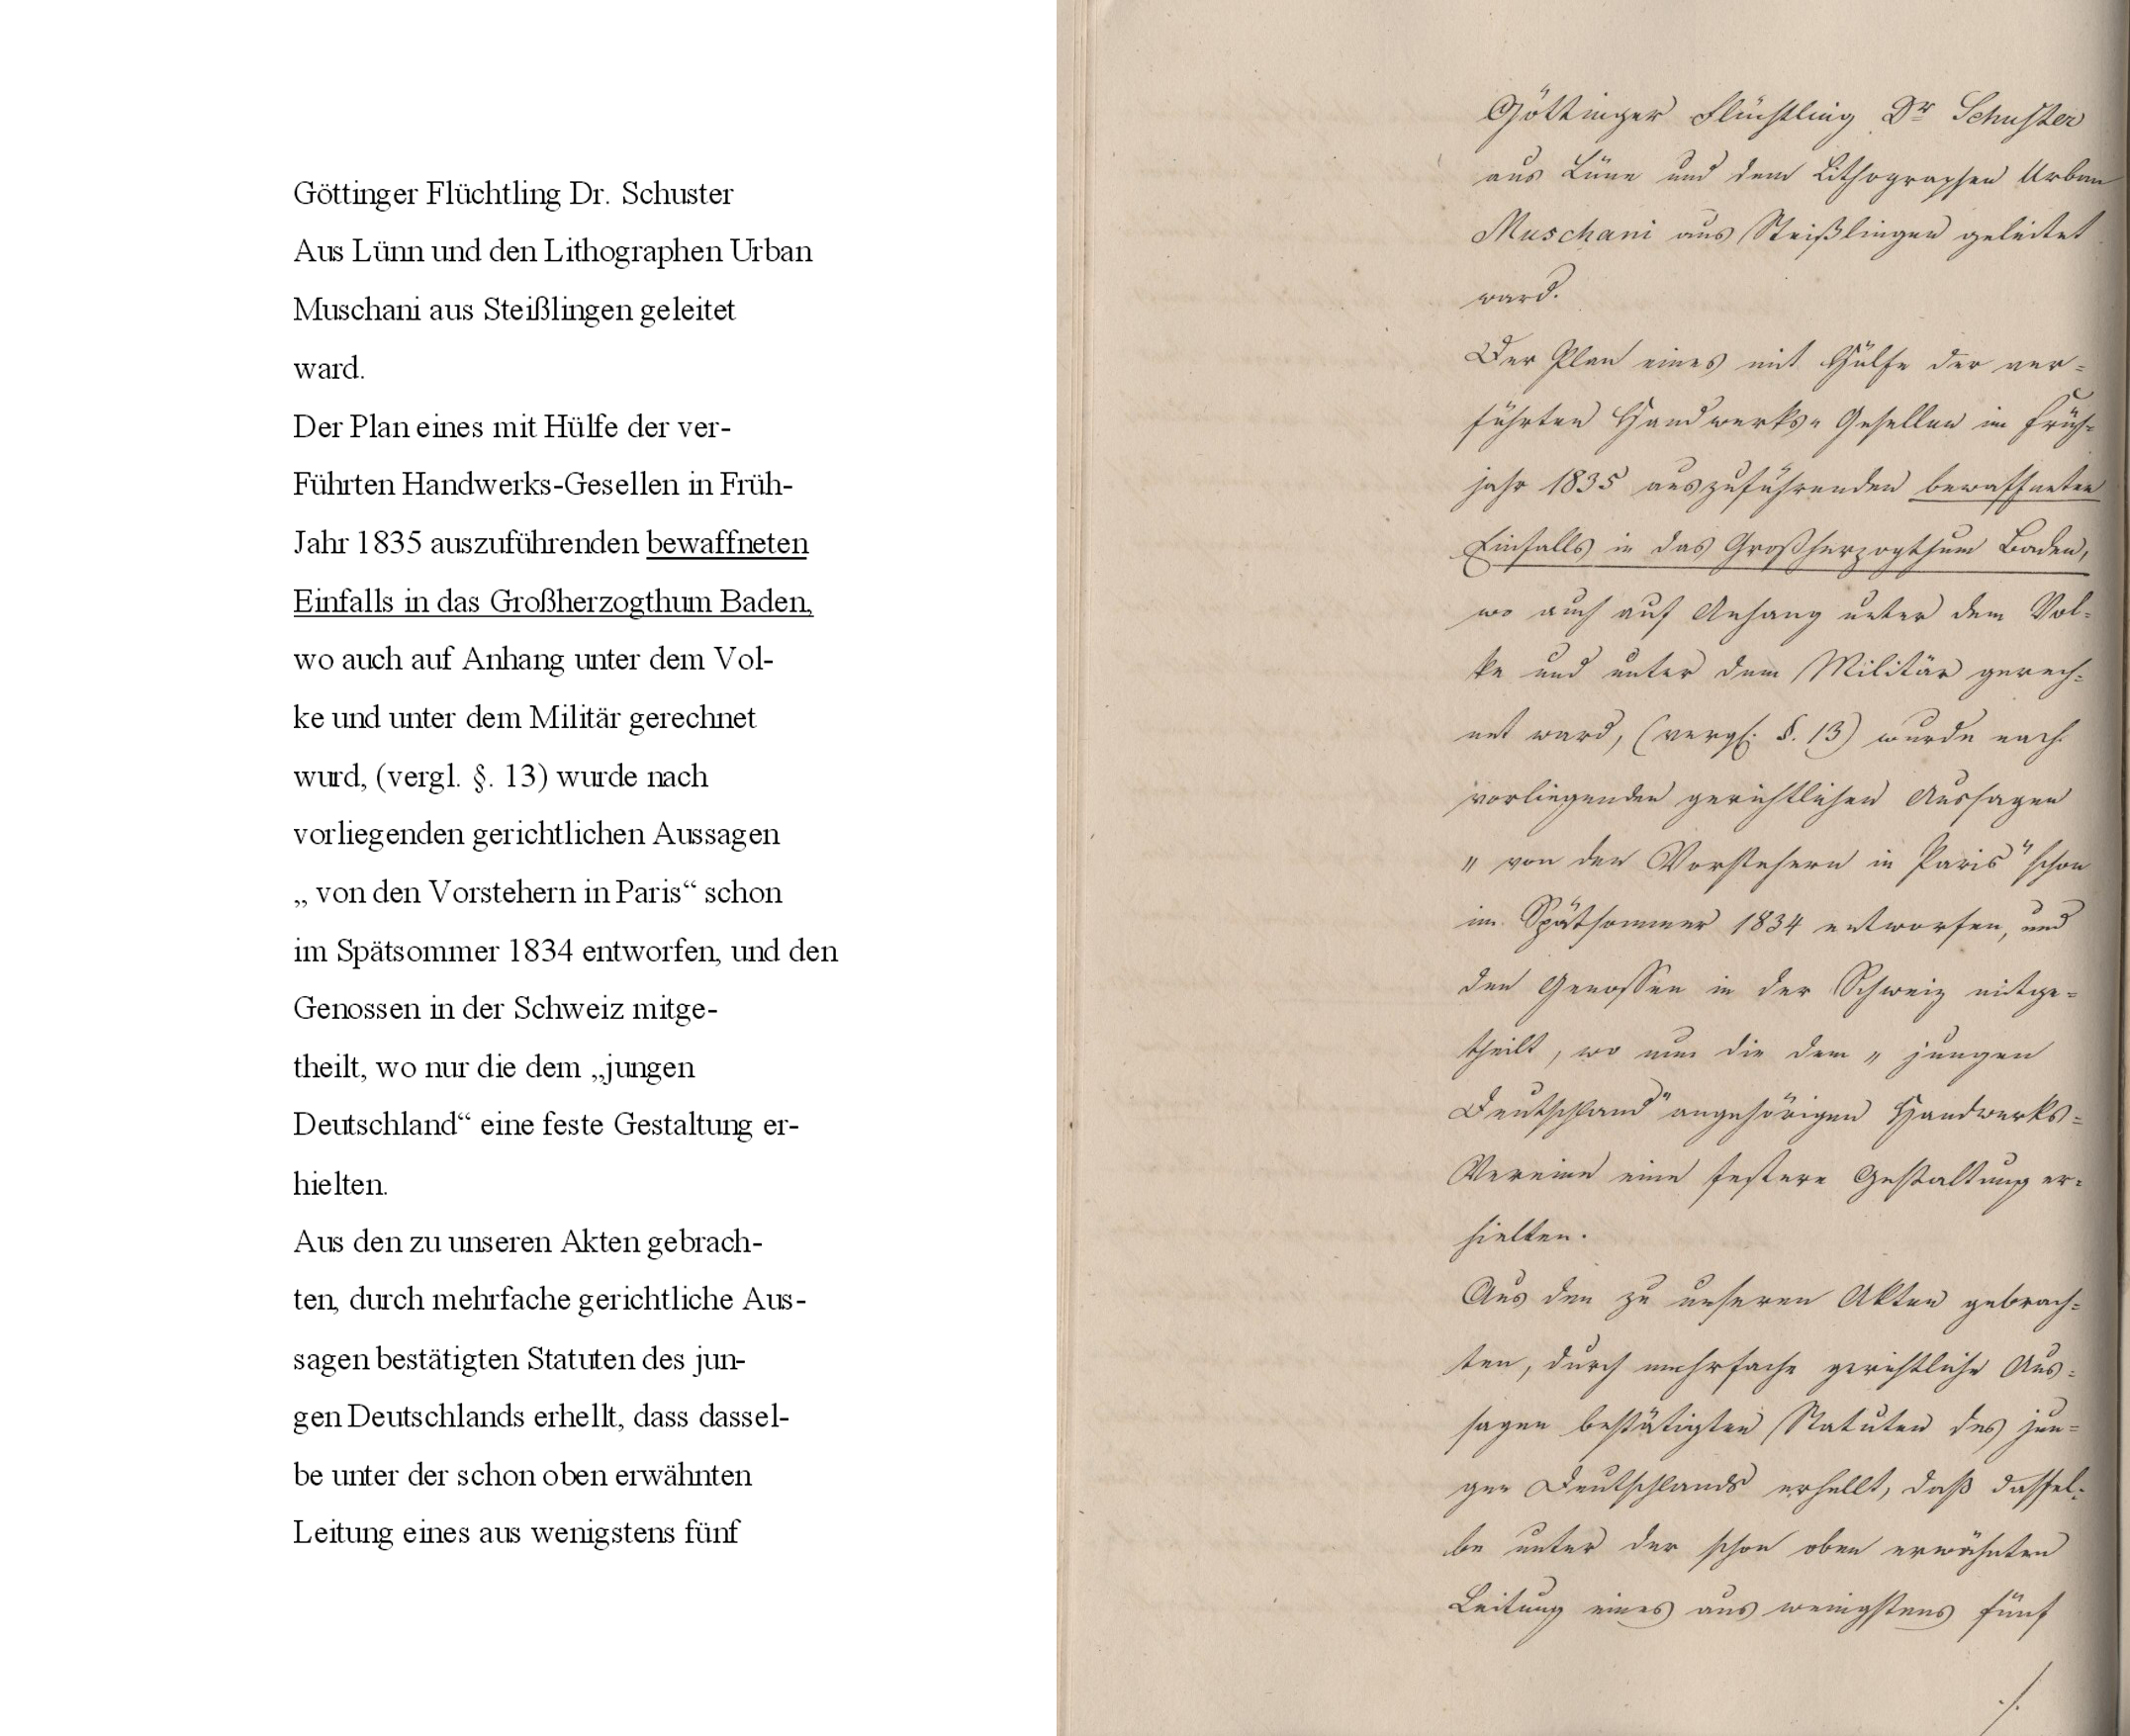 Göttinger Flüchtling Dr. Schuster
Aus Lünn und den Lithographen Urban
Muschani aus Steißlingen geleitet
ward.
Der Plan eines mit Hülfe der ver-
Führten Handwerks-Gesellen in Früh-
Jahr 1835 auszuführenden bewaffneten
Einfalls in das Großherzogthum Baden,
wo auch auf Anhang unter dem Vol-
ke und unter dem Militär gerechnet
wurd, (vergl. §. 13) wurde nach
vorliegenden gerichtlichen Aussagen
„ von den Vorstehern in Paris“ schon
im Spätsommer 1834 entworfen, und den
Genossen in der Schweiz mitge-
theilt, wo nur die dem „jungen
Deutschland“ eine feste Gestaltung er-
hielten.
Aus den zu unseren Akten gebrach-
ten, durch mehrfache gerichtliche Aus-
sagen bestätigten Statuten des jun-
gen Deutschlands erhellt, dass dassel-
be unter der schon oben erwähnten
Leitung eines aus wenigstens fünf
Göttinger Flüchtling Dr Schuster
aus Lüne und dem Lithographen Urban
Muschani aus Steißlingen geleitet
ward.
Der Plan eines mit Hülfe der ver=
führten Handwerks= Gesellen im Früh=
jahr 1835 auszuführenden bewaffneten
Einfalls in das Großherzogthum Baden,
wo auch auf Anhang unter dem Vol=
ke und unter dem Militär gerech=
net ward, (vergl. §. 13) wurde nach
vorliegenden gerichtlichen Aussagen
„ von den Vorstehern in Paris" schon
im Spätsommer 1834 entworfen, und
den Genossen in der Schweiz mitge=
theilt, wo nun die dem „ jungen
Deutschland" angehörigen Handwerks=
Vereine eine festere Gestaltung er=
hielten.
Aus den zu unseren Akten gebrach=
ten, durch mehrfache gerichtliche Aus=
sagen bestätigten Statuten des jun=
gen Deutschlands erhellt, daß dassel=
be unter der schon oben erwähnten
Leitung eines aus wenigstens fünf
./.